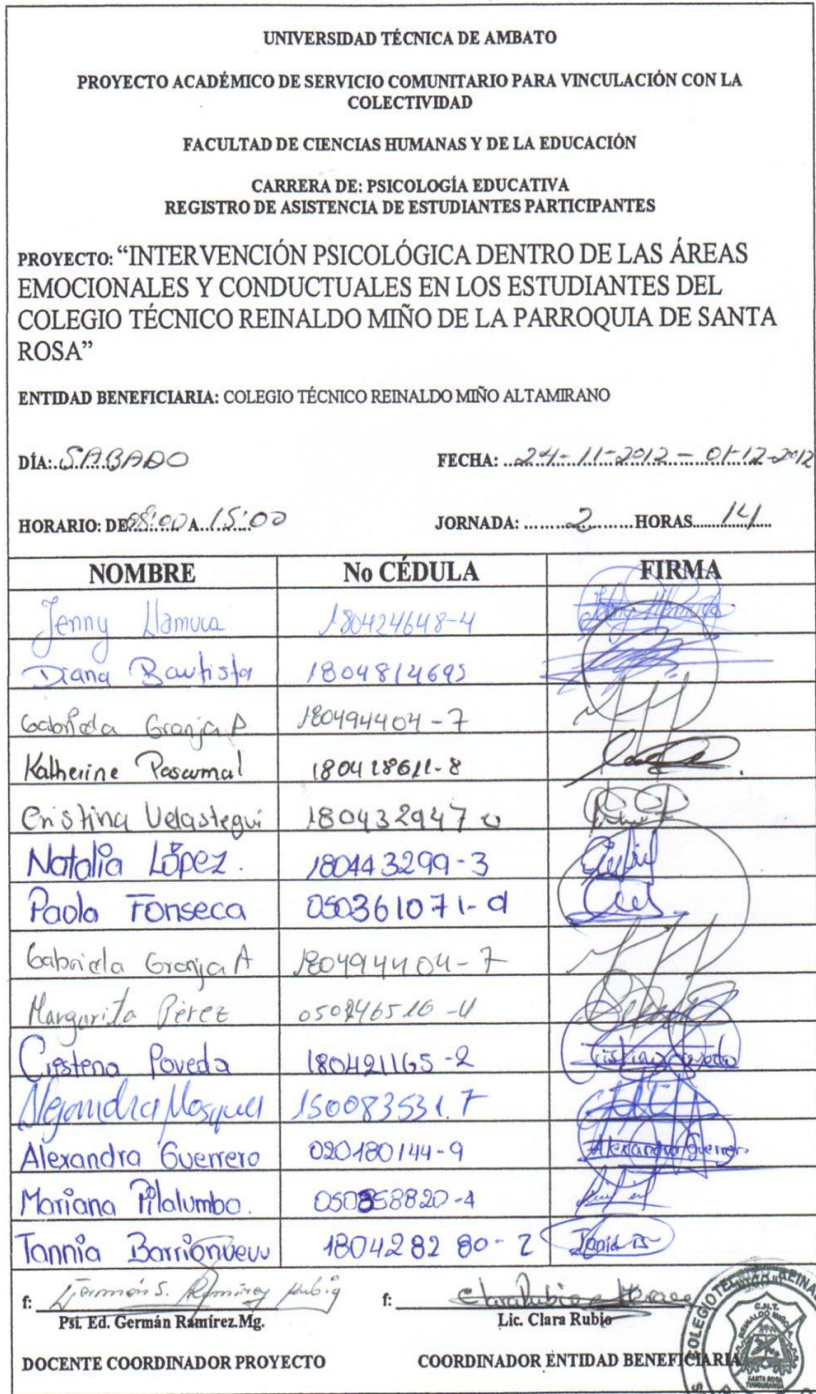 UNIVERSIDAD TÉCNICA DE AMBATO
PROYECTO ACADÉMICO DE SERVICIO COMUNITARIO PARA VINCULACIÓN CON LA
COLECTIVIDAD
FACULTAD DE CIENCIAS HUMANAS Y DE LA EDUCACIÓN
CARRERA DE: PSICOLOGÍA EDUCATIVA
REGISTRO DE ASISTENCIA DE ESTUDIANTES PARTICIPANTES
PROYECTO: “INTERVENCIÓN PSICOLÓGICA DENTRO DE LAS ÁREAS
EMOCIONALES Y CONDUCTUALES EN LOS ESTUDIANTES DEL
COLEGIO TÉCNICO REINALDO MIÑO DE LA PARROQUIA DE SANTA
ROSA”
ENTIDAD BENEFICIARIA: COLEGIO TÉCNICO REINALDO MIÑO ALTAMIRANO
DÍA: SABADO FECHA: 24-11-2012 - 01-12-2012
HORARIO: DE 08:00 A 15:00 JORNADA: 2 HORAS 14
NOMBRE No CÉDULA FIRMA
Jenny Llamuca 180424648-4
Diana Bautista 1804814695
Gabriela Granja A 180494404-7
Katherine 180418611-8
Cristina Velastegui 180432947
Natalia López. 180443299-3
Paola Fonseca 050361071-
Gabriela Granja A 180494404-7
Margarita Pérez
Poveda 180421165-2
Alejandra Mosquera 150083531.7
Alexandra Guerrero 020180144-9 Alexandra Guerrero
Mariana Pilalumbo.
Tannia Barrionuevo 180428280-2
f: f:
Psi. Ed. Germán Ramírez.Mg. Lic. Clara Rubio
DOCENTE COORDINADOR PROYECTO COORDINADOR ENTIDAD BENEFICIARIA